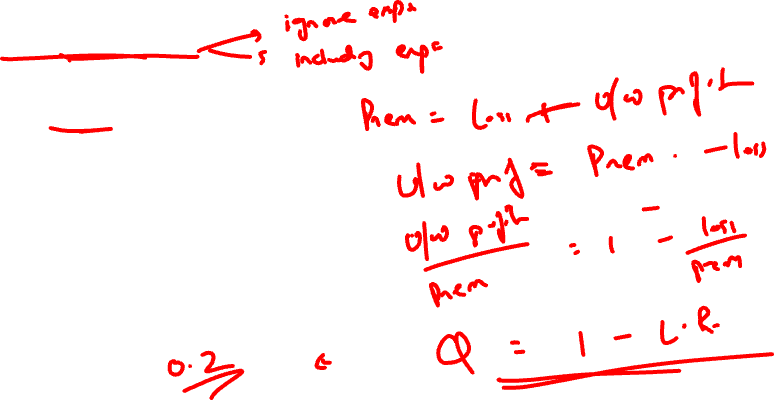 ignore expx
including exp=
Prem = Loss + U/w profit
U/w prof = Prem. - loss
U/w profit / prem = 1 - loss / prem
0.2 ← Q = 1 - L.R.